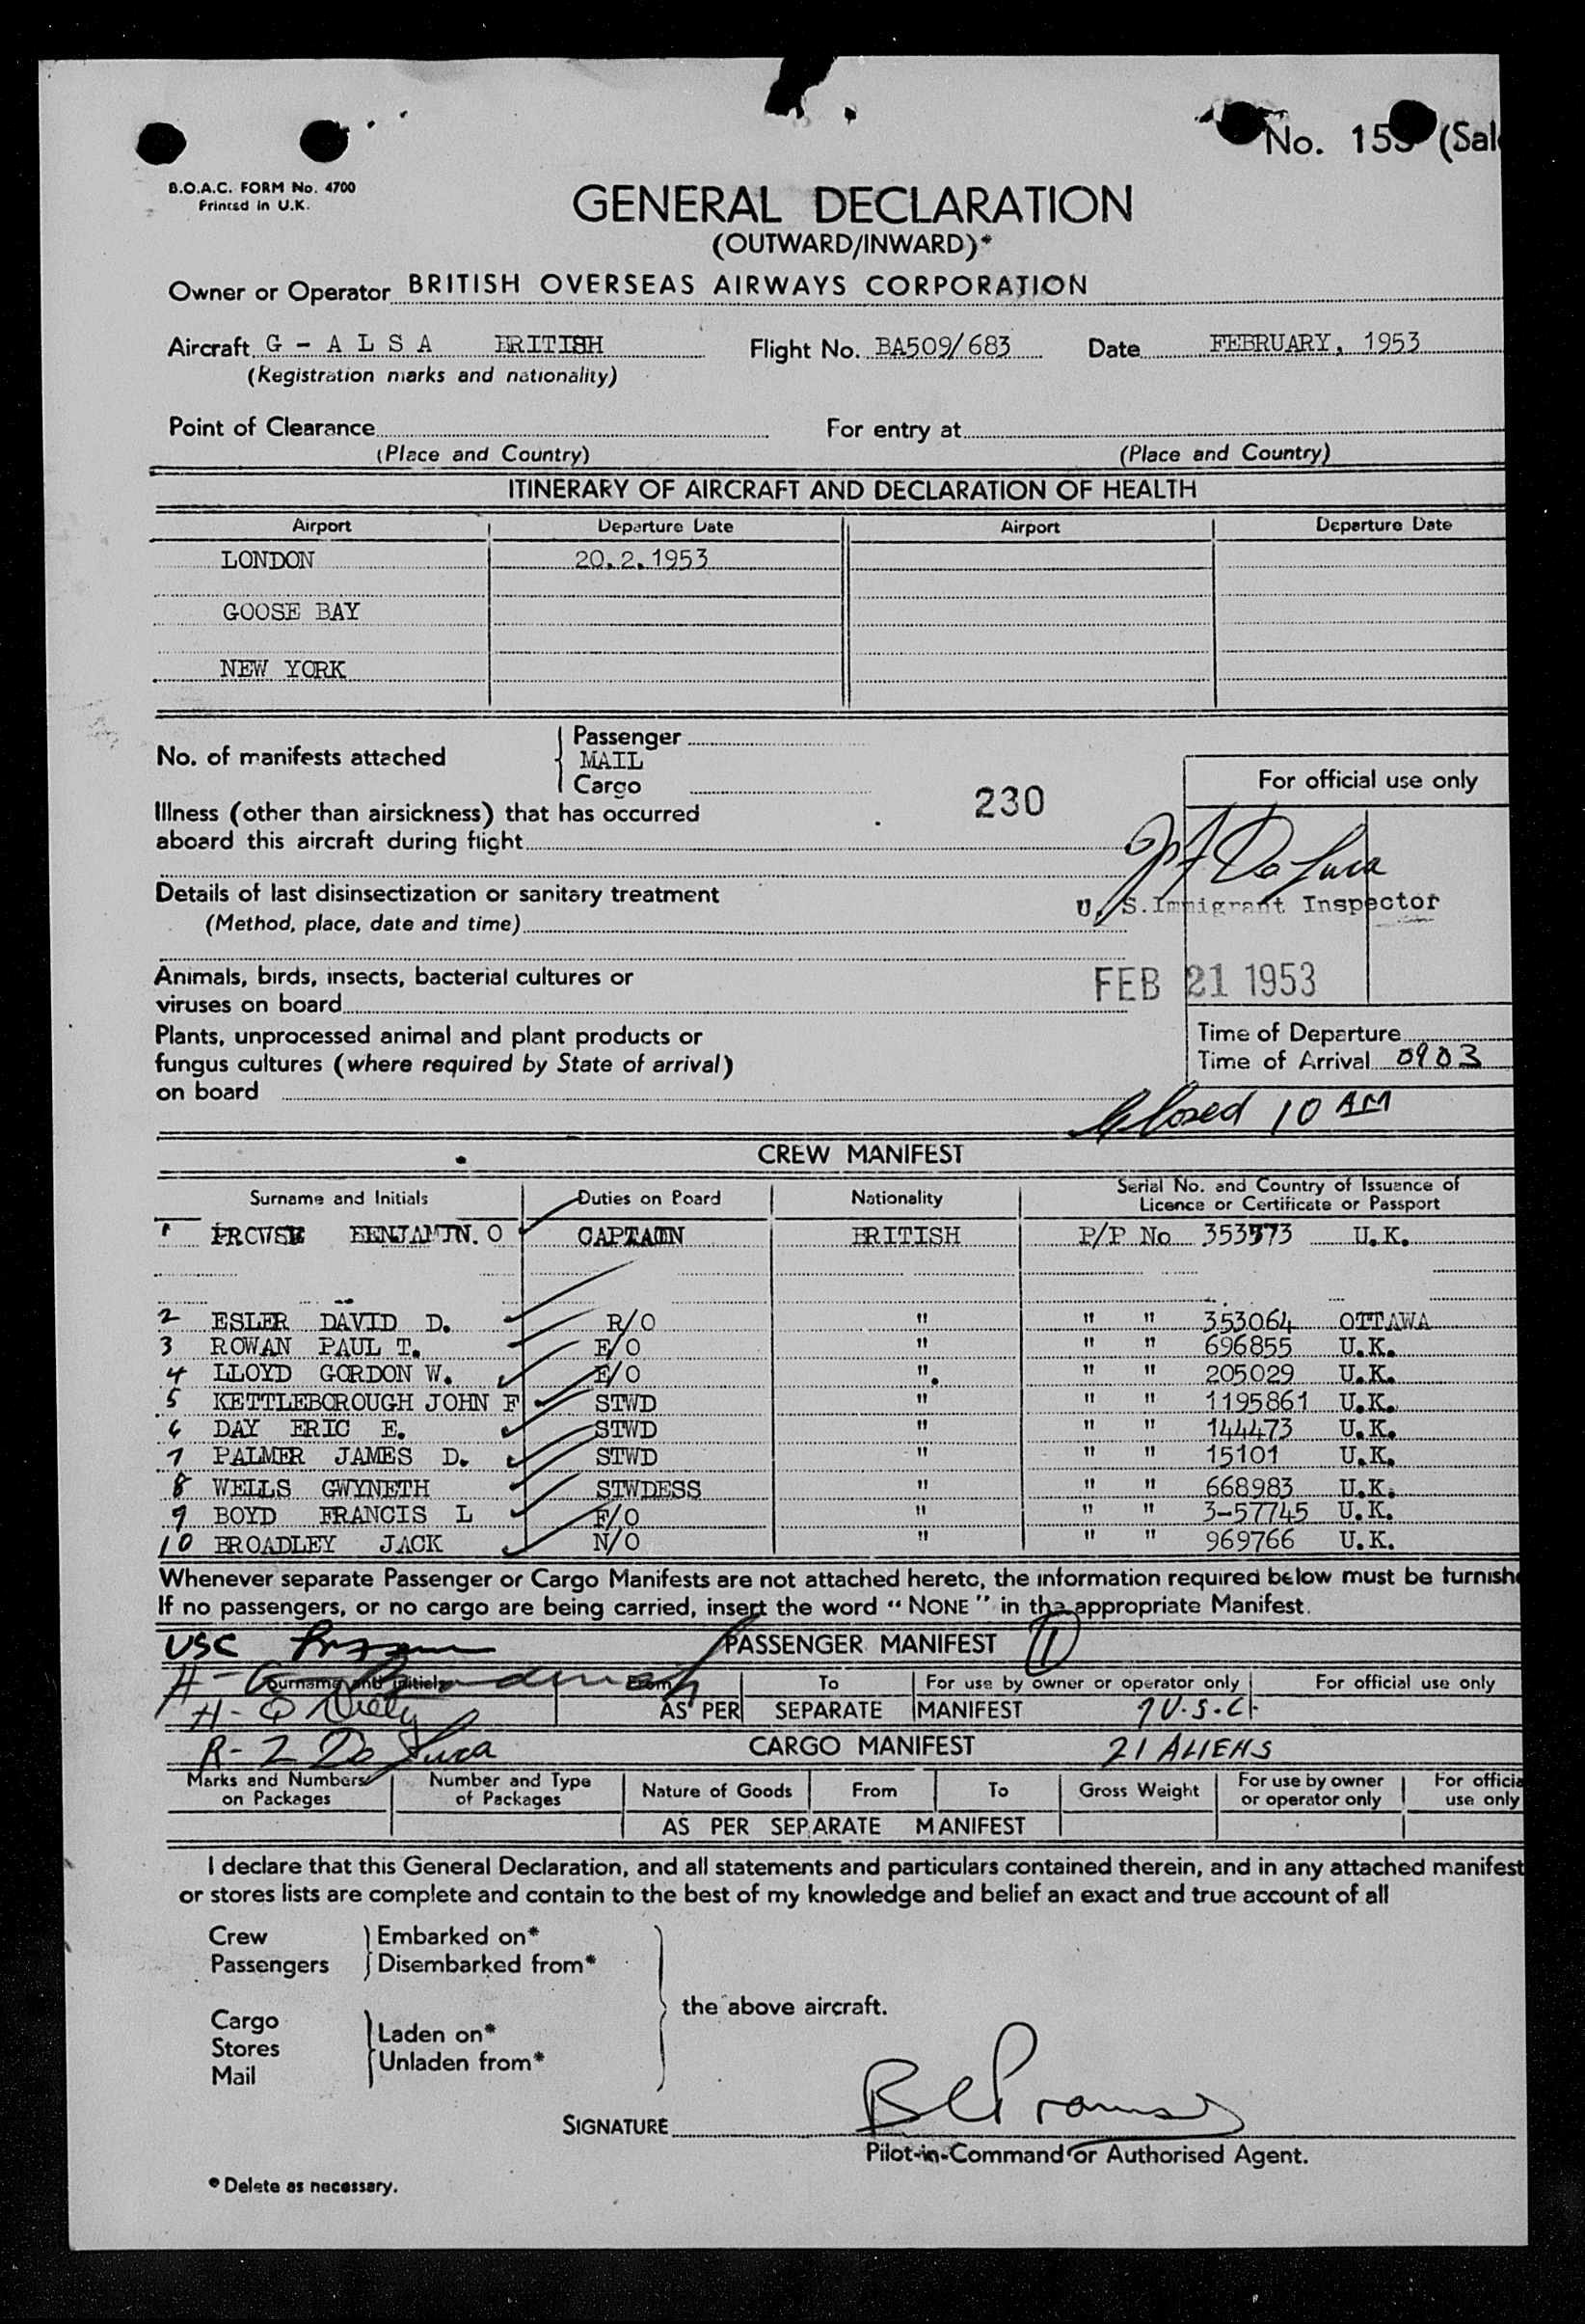 No. 15 (Sal
B.O.A.C. FORM No. 4700
Printed in U.K.
GENERAL DECLARATION
(OUTWARD/INWARD)*
Owner or Operator BRITISH OVERSEAS AIRWAYS CORPORATION
Aircraft G - A L S A BRITISH Flight No. BA509/683 Date FEBRUARY, 1953
(Registration marks and nationality)
Point of Clearance For entry at
(Place and Country) (Place and Country)
ITINERARY OF AIRCRAFT AND DECLARATION OF HEALTH
Airport Departure Date Airport Departure Date
LONDON 20.2.1953
GOOSE BAY
NEW YORK
No. of manifests attached
Passenger
MAIL
Cargo
230
For official use only
Illness (other than airsickness) that has occurred
aboard this aircraft during flight
Details of last disinsectization or sanitary treatment
(Method, place, date and time)
U. S. Immigrant Inspector
Animals, birds, insects, bacterial cultures or
viruses on board
FEB 21 1953
Plants, unprocessed animal and plant products or
fungus cultures (where required by State of arrival)
on board
Time of Departure
Time of Arrival 0903
Closed 10 AM
CREW MANIFEST
Surname and Initials Duties on Board Nationality Serial No. and Country of Issuance of
Licence or Certificate or Passport
1 PROWSE BENJAMIN. O CAPTAIN BRITISH P/P No 353573 U.K.
2 ESLER DAVID D. R/O " " " 353064 OTTAWA
3 ROWAN PAUL T. E/O " " " 696855 U.K.
4 LLOYD GORDON W. E/O ". " " 205029 U.K.
5 KETTLEBOROUGH JOHN F STWD " " " 1195861 U.K.
6 DAY ERIC E. STWD " " " 144473 U.K.
7 PALMER JAMES D. STWD " " " 15101 U.K.
8 WELLS GWYNETH STWDESS " " " 668983 U.K.
9 BOYD FRANCIS L F/O " " " 3-57745 U.K.
10 BROADLEY JACK N/O " " " 969766 U.K.
Whenever separate Passenger or Cargo Manifests are not attached hereto, the information required below must be furnishe
If no passengers, or no cargo are being carried, insert the word "NONE" in the appropriate Manifest.
USC PASSENGER MANIFEST 1
Surname and Initials From To For use by owner or operator only For official use only
AS PER SEPARATE MANIFEST 9 U.S.C.
R-2 CARGO MANIFEST 21 ALIENS
Marks and Numbers on Packages Number and Type of Packages Nature of Goods From To Gross Weight For use by owner or operator only For officia use only
AS PER SEPARATE MANIFEST
I declare that this General Declaration, and all statements and particulars contained therein, and in any attached manifest
or stores lists are complete and contain to the best of my knowledge and belief an exact and true account of all
Crew Embarked on*
Passengers Disembarked from*
the above aircraft.
Cargo
Stores
Mail
Laden on*
Unladen from*
SIGNATURE
Pilot-in-Command or Authorised Agent.
* Delete as necessary.